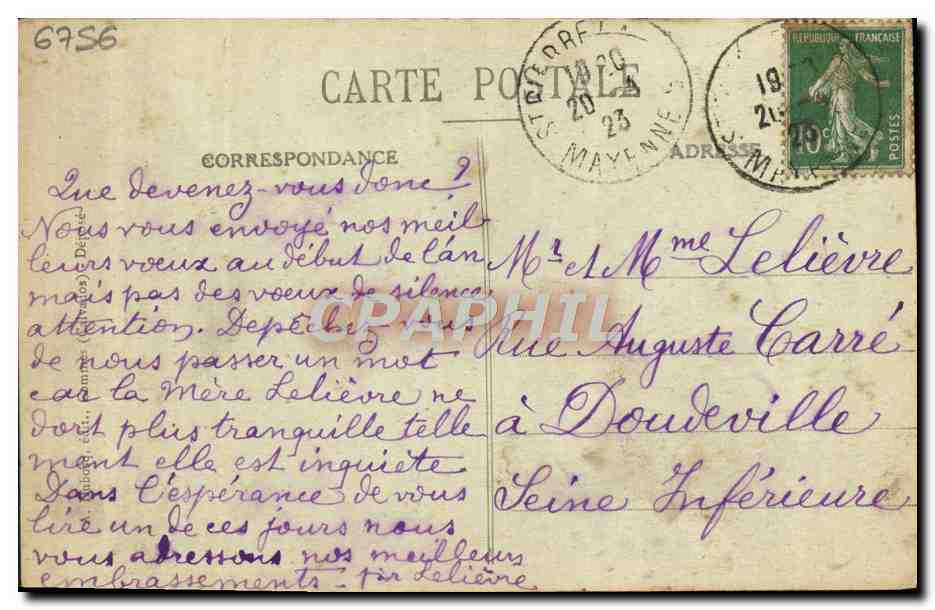 6756
CARTE POSTALE
ST PIERRE
19 20
20 4
23
MAYENNE
REPUBLIQUE FRANÇAISE
10c
POSTES
CORRESPONDANCE
ADRESSE
Que devenez-vous donc?
Nous vous envoyé nos meil
leurs vœux au début de l'an
mais pas des vœux de silence
attention. Depêchez-vous
de nous passer un mot
car la Mère Lelièvre ne
dort plus tranquille telle
ment elle est inquiète
Dans l'espérance de vous
lire un de ces jours nous
vous adressons nos meilleurs
embrassements - Lelièvre
Mr et Mme Lelièvre
Rue Auguste Carré
à Doudeville
Seine Inférieure
(Calvados) Déposé
CPAPHIL